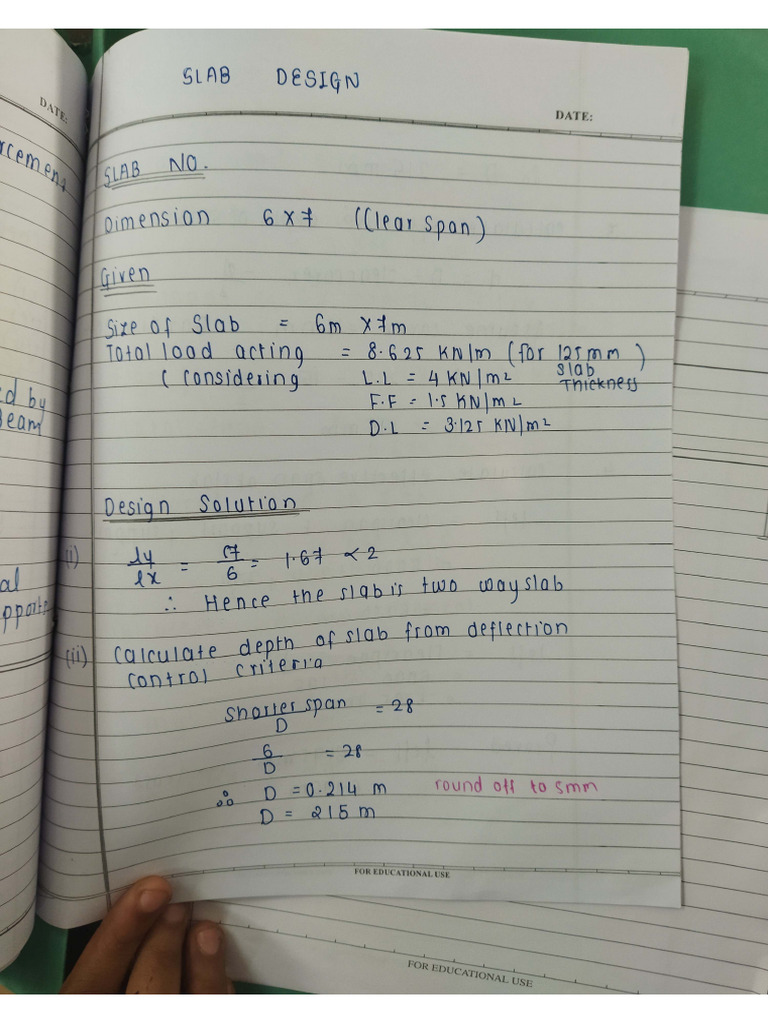 SLAB DESIGN
DATE:
DATE:
rcement
SLAB NO.
Dimension 6 x 7 (Clear span)
Given
Size of Slab = 6m x 7m
Total load acting = 8.625 KN/m (for 125mm )
( considering L.L = 4 KN/m2 slab
Thickness
F.F = 1.5 KN/m2
D.L = 3.125 KN/m2
ed by
Beam
Design Solution
(i) ly/lx = 7/6 = 1.67 < 2
al
pports
∴ Hence the slab is two way slab
(ii) Calculate depth of slab from deflection
control criteria
Shorter span/D = 28
6/D = 28
∴ D = 0.214 m round off to 5mm
D = 215 m
FOR EDUCATIONAL USE
FOR EDUCATIONAL USE